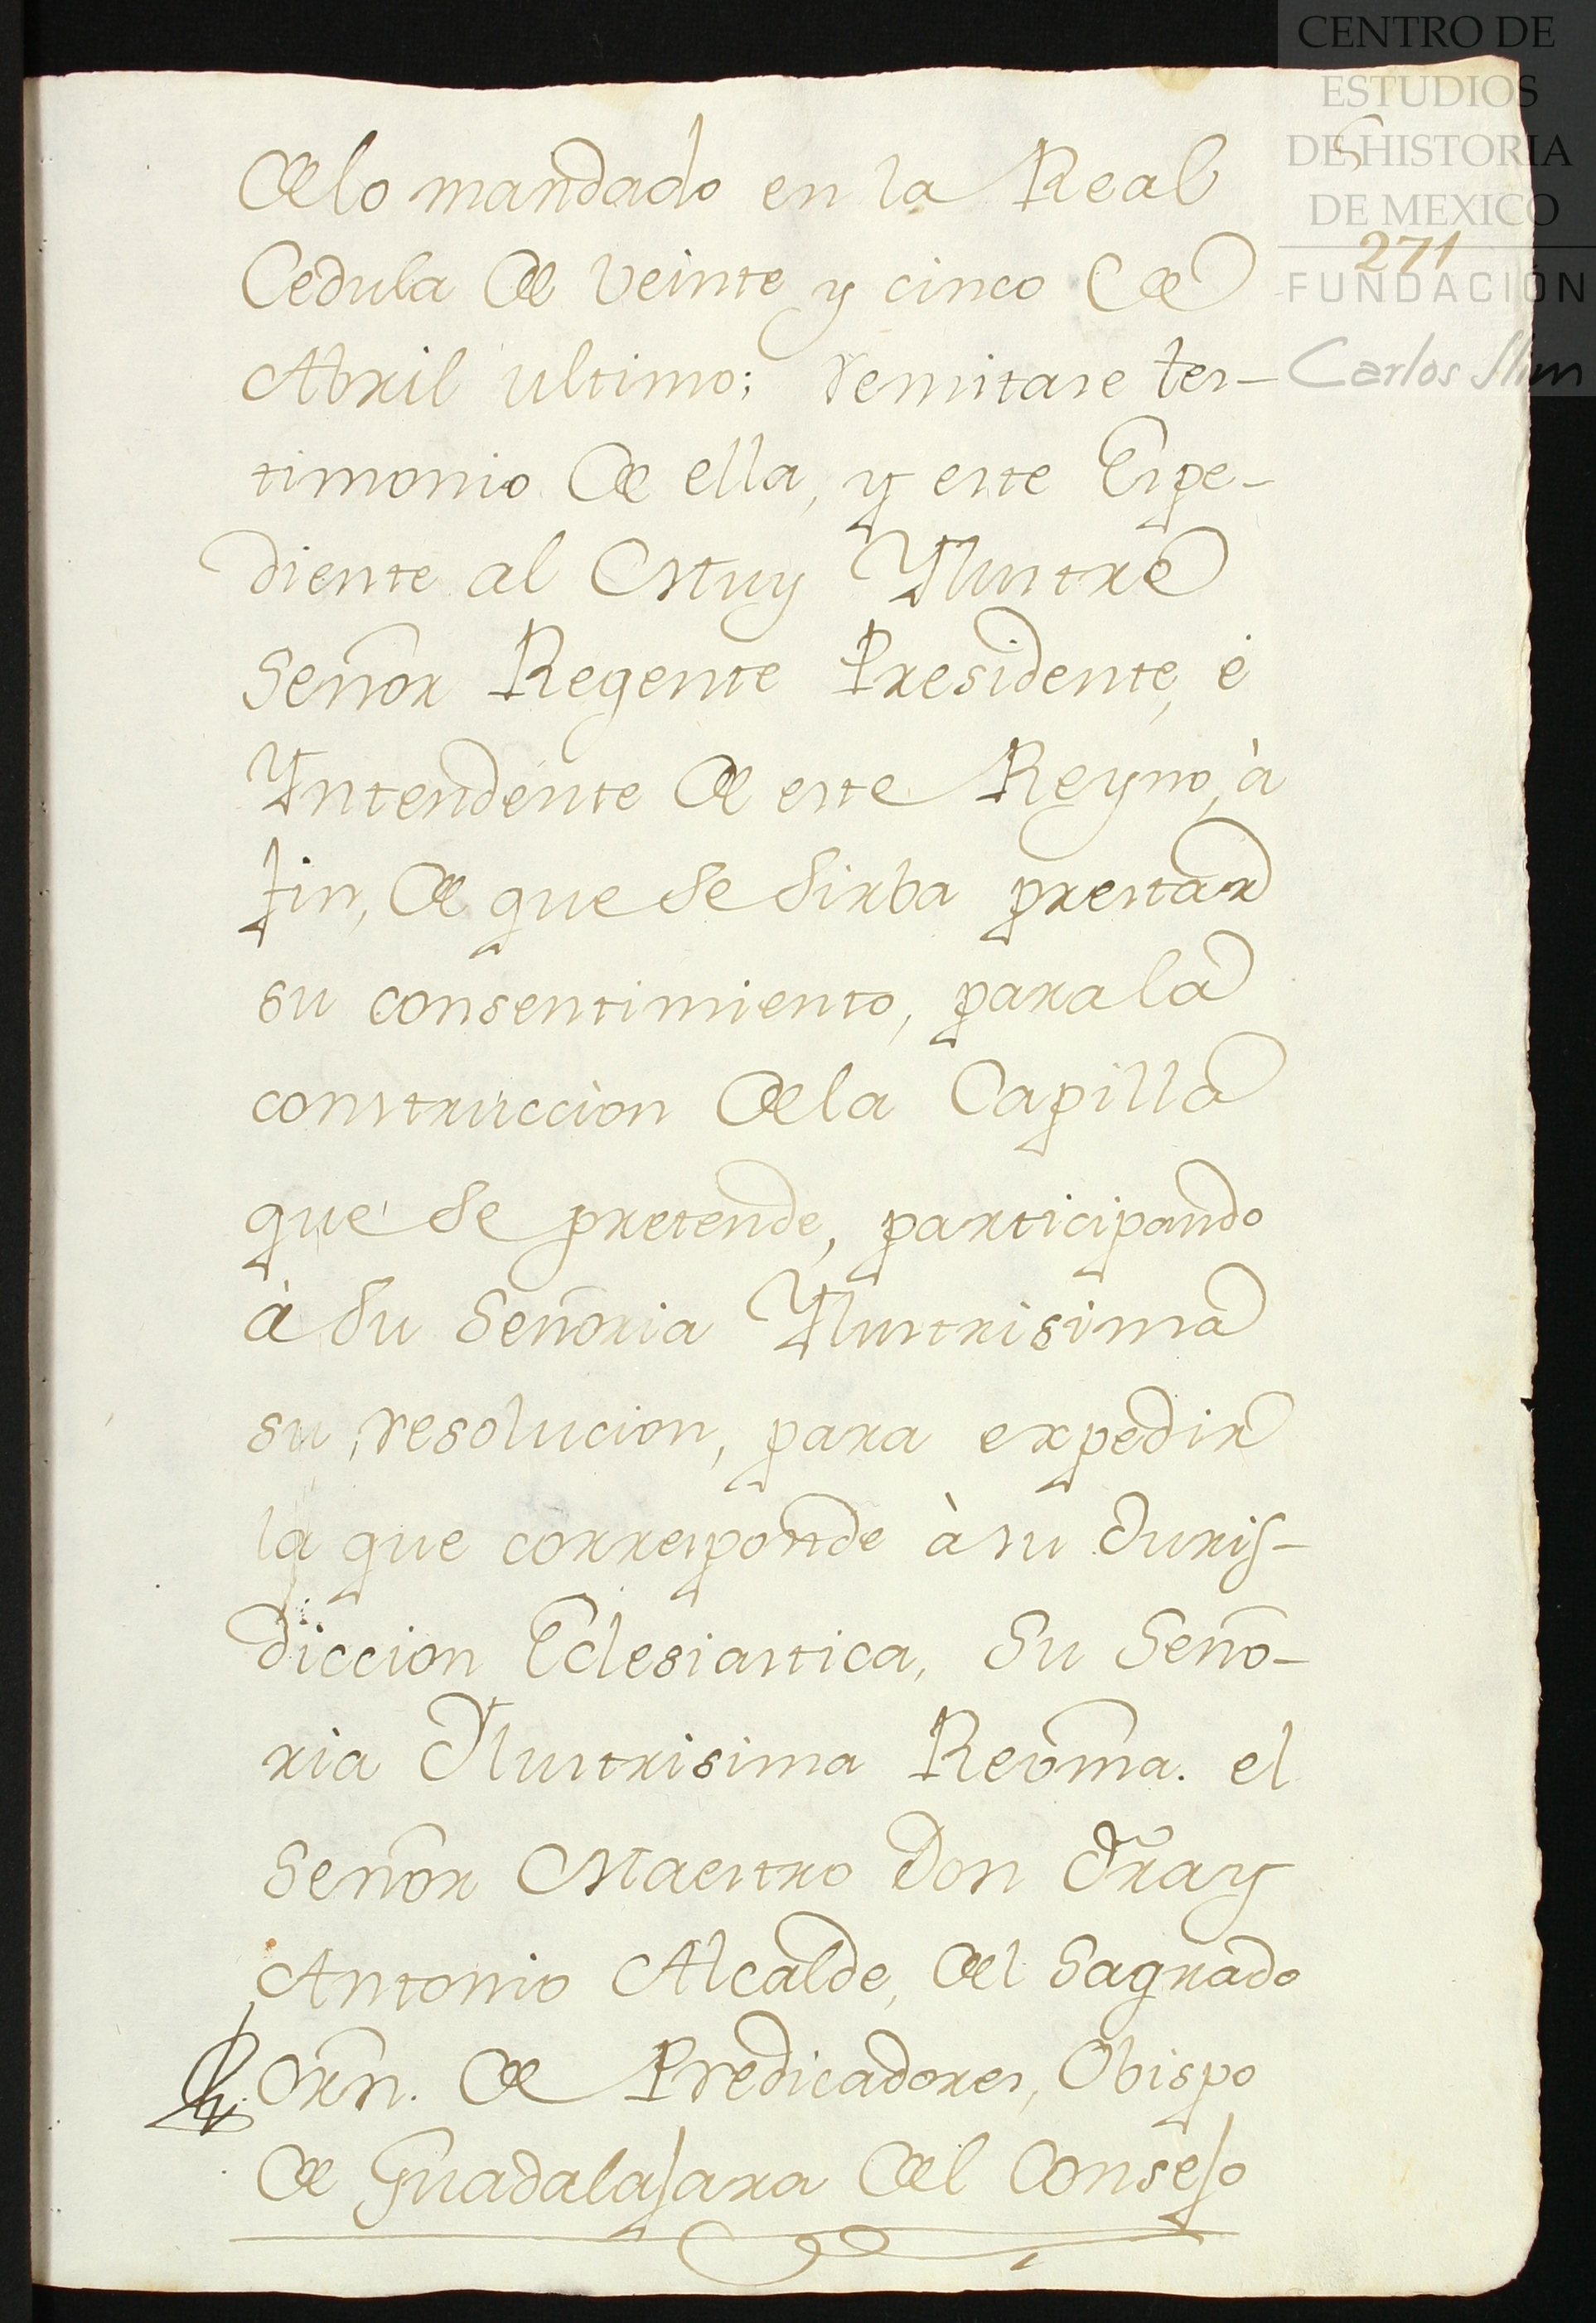 CENTRO DE
ESTUDIOS
DE HISTORIA
DE MEXICO
FUNDACIÓN
Carlos Slim
5
271
delo mandado en la Real
Cedula de veinte y cinco de
Abril ultimo; remitase tes-
timonio de ella, y este Espe-
diente al Muy Yllustre
Señor Regente Presidente, é
Yntendente de este Reyno, à
fin, de que se sirba prestar
su consentimiento, para la
construccion dela Capilla
que se pretende, participando
à Su Señoria Yllustrisima
su resolucion, para expedir
la que corresponde à su Juris-
diccion Eclesiastica, Su Seño-
ria Ylustrisima Revma. el
Señor Maestro Don Fray
Antonio Alcalde, del Sagrado
Orn. de Predicadores, Obispo
de Guadalajara del Consejo